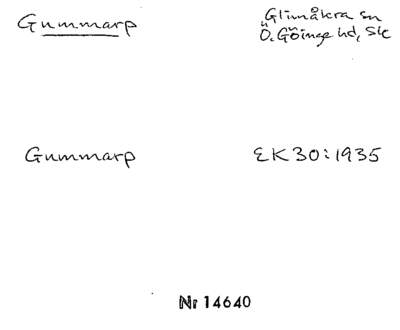 Gummarp
Glimåkra sn
Ö. Göinge hd, Sk
Gummarp
EK30:1935
Nr 14640